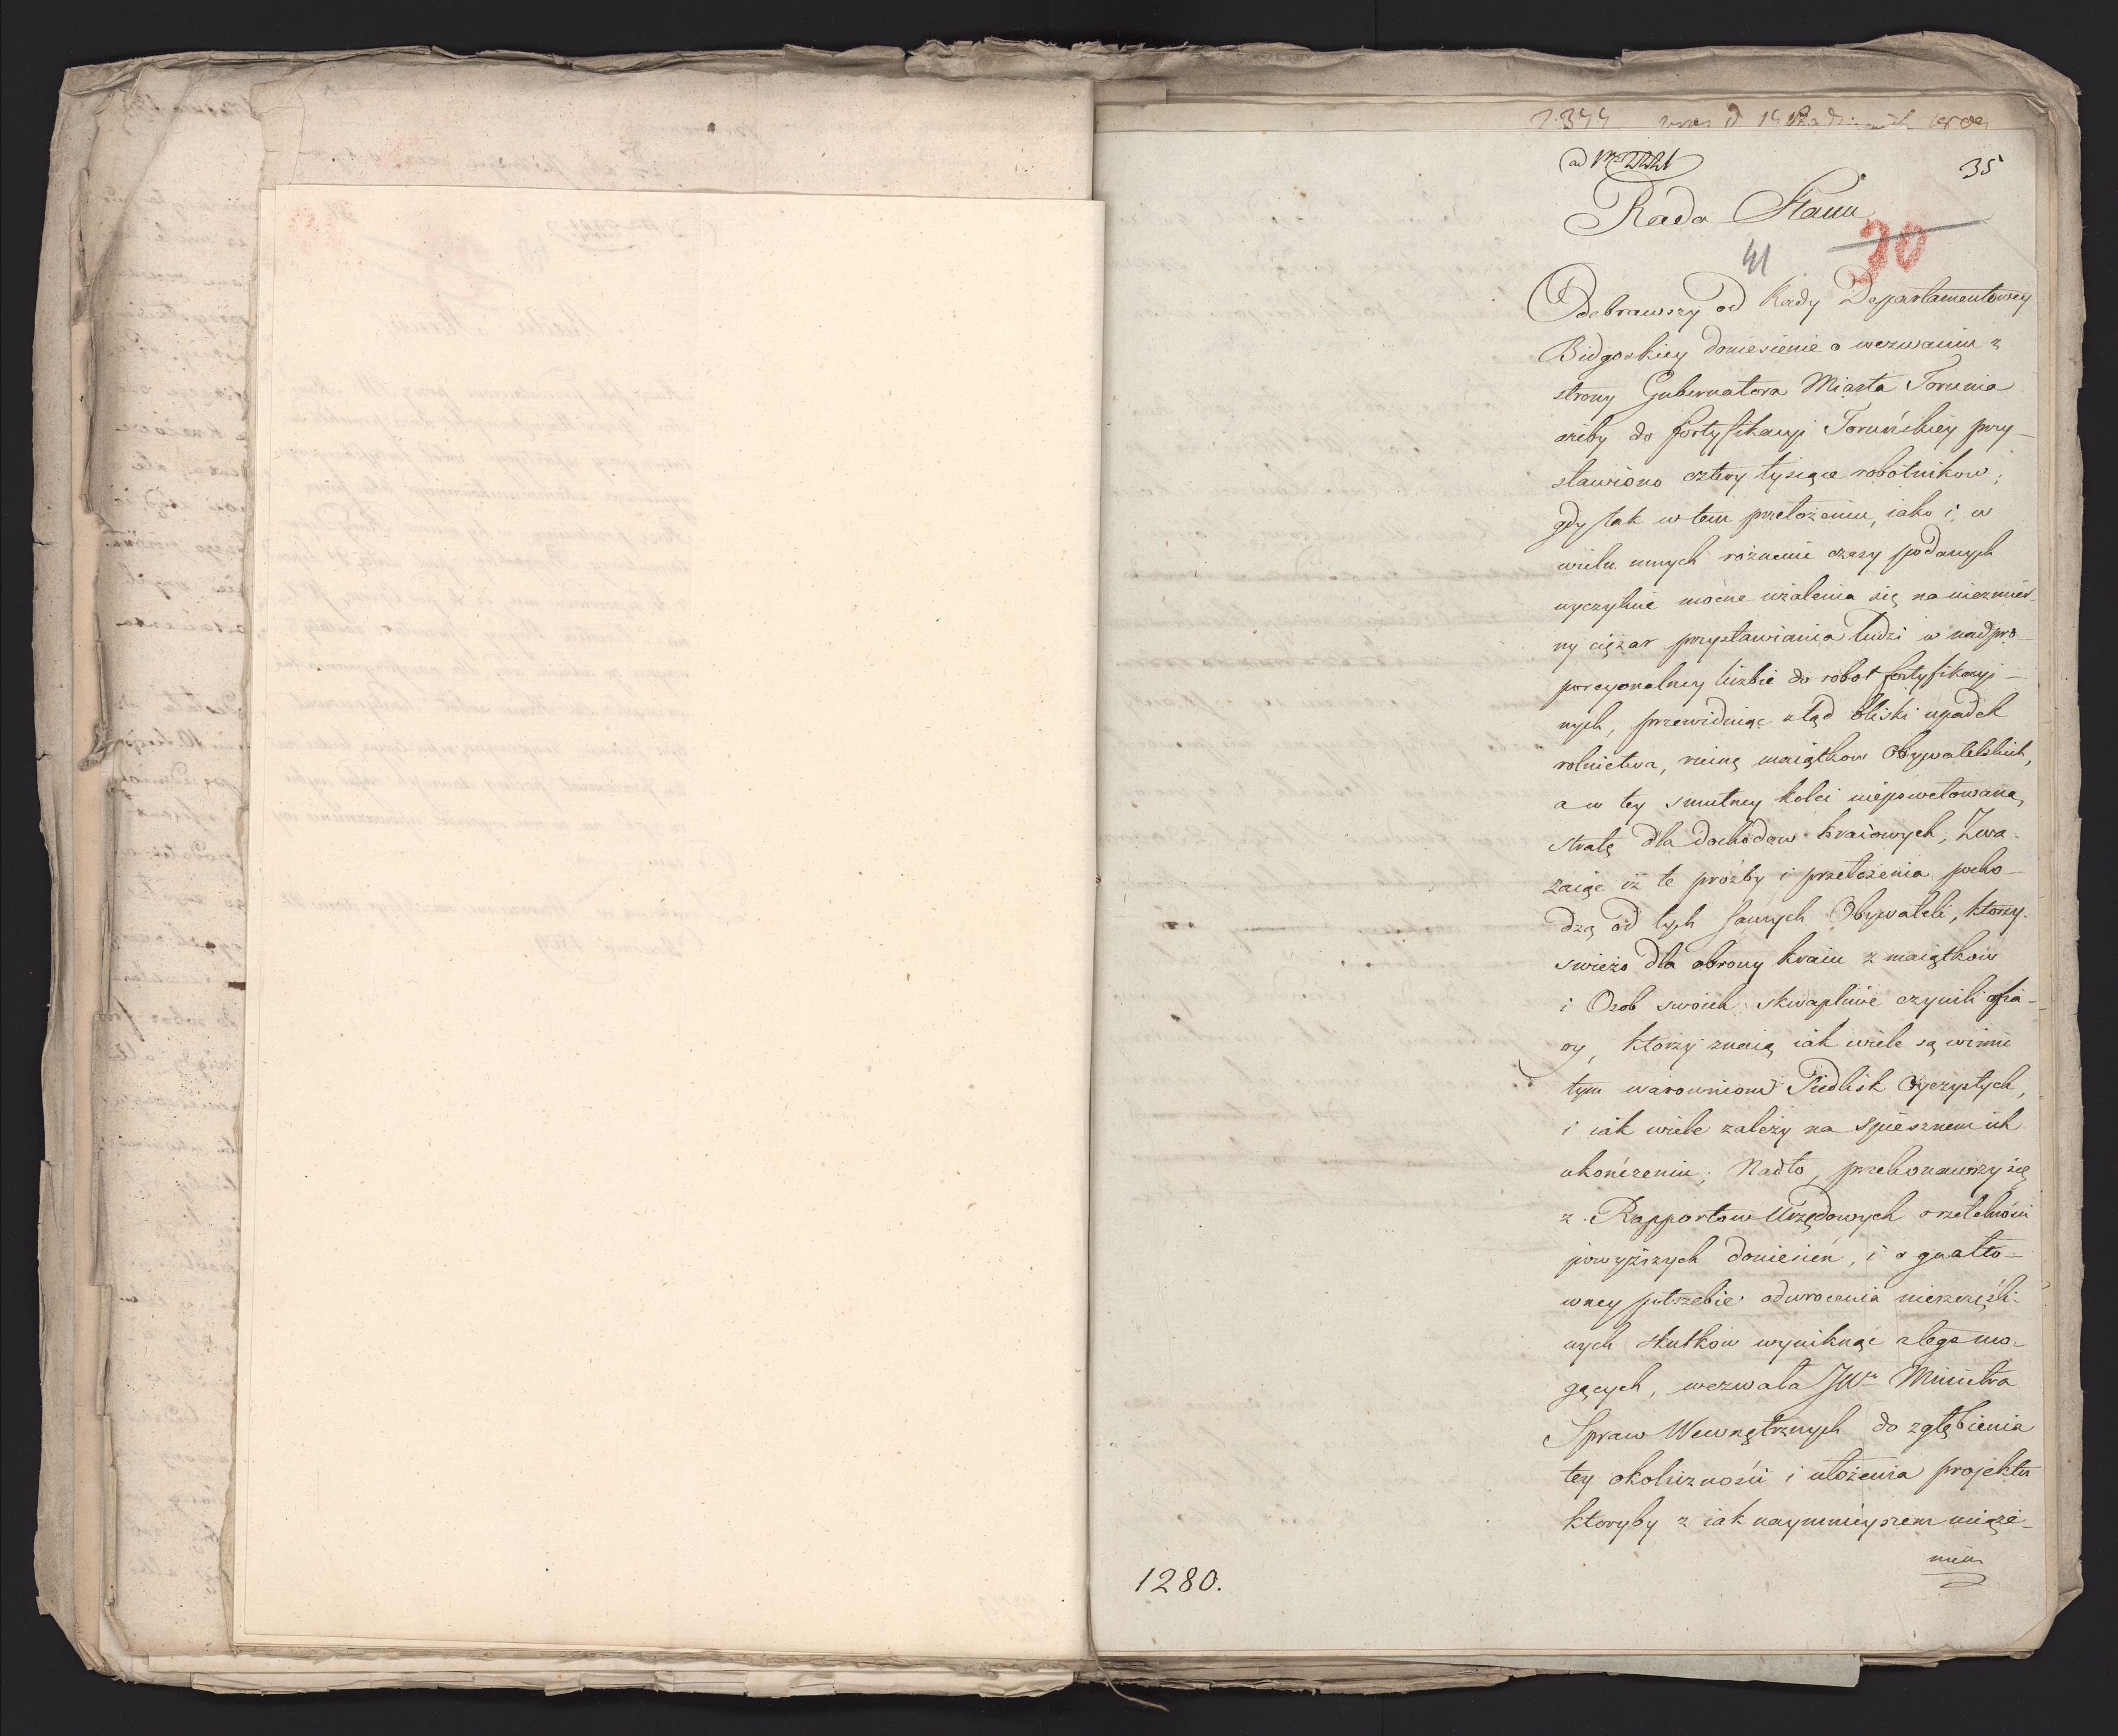 2344
ad Nro 2221
35
Rada Stanu
30
41
Odebrawszy od Rady Departamentowey
Bidgoskiey doniesienie o wezwaniu z
strony Gubernatora Miasta Torunia
ażeby do fortyfikacyi Toruńskiey przy-
stawiono cztery tysiące robotnikow;
gdy tak w tem przełożeniu, iako i w
wielu innych różnemi czasy podanych
wyczytuie mocne użalenia się na niezmier-
ny ciężar przystawiania ludzi w nadpro-
porcyonalney liczbie do robot fortyfikacyi-
nych, przewiduiąc ztąd bliski upadek
rolnictwa, ruinę maiątkow Obywatelskich,
a w tey smutney kolei niepowetowaną
stratę dla dochodow kraiowych; Zwa-
żaiąc iż te prozby i przełożenia pocho-
dzą od tych samych Obywateli, ktorzy
swieżo dla obrony kraiu z maiątkow
i Osob swoich skwapliwe czynili ofia-
ry, ktorzy znaią iak wiele są winni
tym warowniom Siedlisk Oyczystych,
i iak wiele zależy na spiesznem ich
ukończeniu; Nadto, przekonawszy się
z Rapportow Urzędowych o rzetelności
powyższych doniesień, i o gwałto-
wney potrzebie odwrocenia nieszczęśli-
wych skutkow wyniknąć z tego mo-
gących, wezwała JWo Ministra
Spraw Wewnętrznych do zgłębienia
tey okoliczności i ułożenia projektu
ktoryby z iak naymnieyszem uciąże-
niem
1280.